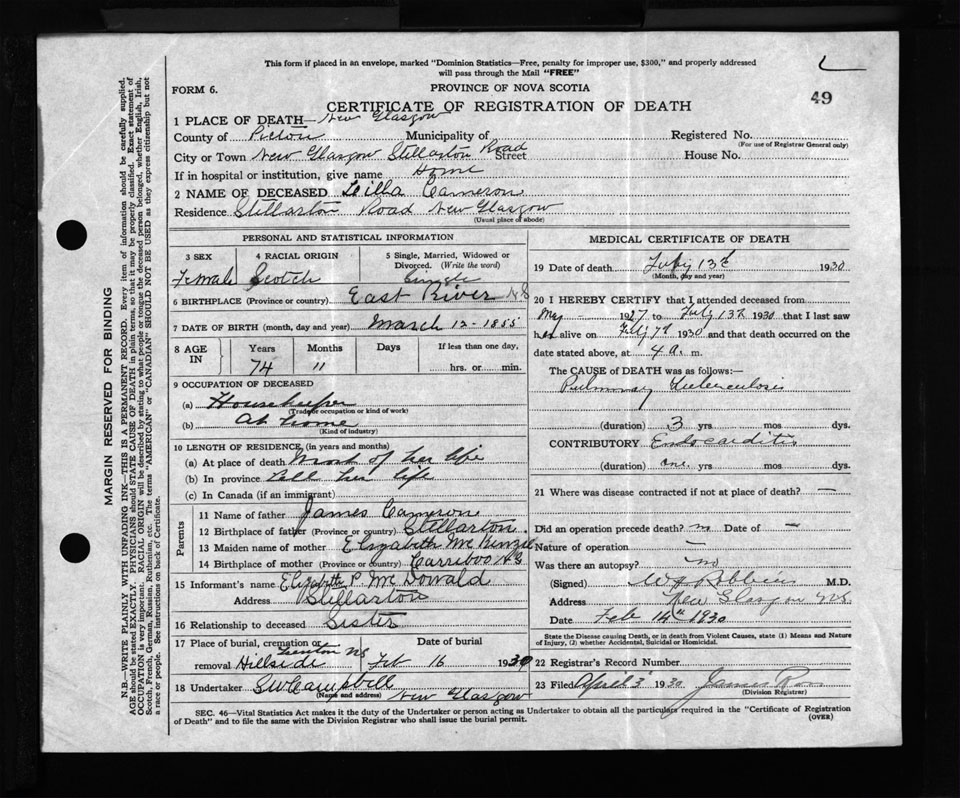 This form if placed in an envelope, marked "Dominion Statistics—Free, penalty for improper use, $300," and properly addressed
will pass through the Mail "FREE"
FORM 6.
PROVINCE OF NOVA SCOTIA
49
CERTIFICATE OF REGISTRATION OF DEATH
1 PLACE OF DEATH— New Glasgow
County of Pictou Municipality of Registered No.
(For use of Registrar General only)
City or Town New Glasgow Stellarton Road Street House No.
If in hospital or institution, give name Home
2 NAME OF DECEASED Lilla Cameron
Residence Stellarton Road New Glasgow
(Usual place of abode)
MARGIN RESERVED FOR BINDING
N.B.—WRITE PLAINLY WITH UNFADING INK—THIS IS A PERMANENT RECORD. Every item of information should be carefully supplied.
AGE should be stated EXACTLY. PHYSICIANS should STATE CAUSE OF DEATH in plain terms, so that it may be properly classified. Exact statement of
OCCUPATION is very important. RACIAL ORIGIN will be described by stating to what people or tongue the deceased person belonged, whether English, Irish,
Scotch, French, German, Russian, Ruthenian, etc. The terms "AMERICAN" or "CANADIAN" SHOULD NOT BE USED as they express citizenship but not
a race or people. See instructions on back of Certificate.
PERSONAL AND STATISTICAL INFORMATION
3 SEX 4 RACIAL ORIGIN 5 Single, Married, Widowed or
Divorced. (Write the word)
Female Scotch Single
6 BIRTHPLACE (Province or country) East River N S
7 DATE OF BIRTH (month, day and year) March 12 - 1855
8 AGE IN Years Months Days If less than one day,
74 11 hrs. or min.
9 OCCUPATION OF DECEASED
(a) Housekeeper
(Trade or occupation or kind of work)
(b) At home
(Kind of industry)
10 LENGTH OF RESIDENCE (in years and months)
(a) At place of death Most of her life
(b) In province All her life
(c) In Canada (if an immigrant)
Parents
11 Name of father James Cameron
12 Birthplace of father (Province or country) Stellarton
13 Maiden name of mother Elizabeth McKenzie
14 Birthplace of mother (Province or country) Carriboo N S
15 Informant's name Elizabeth P. McDonald
Address Stellarton
16 Relationship to deceased Sister
17 Place of burial, cremation or Date of burial
Trenton N S
removal Hillside Feb 16 1930
18 Undertaker S W Campbell
(Name and address) New Glasgow
MEDICAL CERTIFICATE OF DEATH
19 Date of death Feby 13th 1930
(Month, day and year)
20 I HEREBY CERTIFY that I attended deceased from
May - 1927 to Feby 13th 1930 that I last saw
her alive on Feby 7th 1930 and that death occurred on the
date stated above, at 4 a. m.
The CAUSE of DEATH was as follows:—
Pulmonary Tuberculosis
(duration) 3 yrs mos dys.
CONTRIBUTORY Endocarditis
(duration) one yrs mos dys.
21 Where was disease contracted if not at place of death? —
Did an operation precede death? no Date of —
Nature of operation —
Was there an autopsy? no
(Signed) M.D.
Address New Glasgow N.S.
Date Feb 14th 1930
State the Disease causing Death, or in death from Violent Causes, state (1) Means and Nature
of Injury, (2) whether Accidental, Suicidal or Homicidal.
22 Registrar's Record Number
23 Filed April 3 1930 James
(Division Registrar)
SEC. 46—Vital Statistics Act makes it the duty of the Undertaker or person acting as Undertaker to obtain all the particulars required in the "Certificate of Registration
of Death" and to file the same with the Division Registrar who shall issue the burial permit. (OVER)